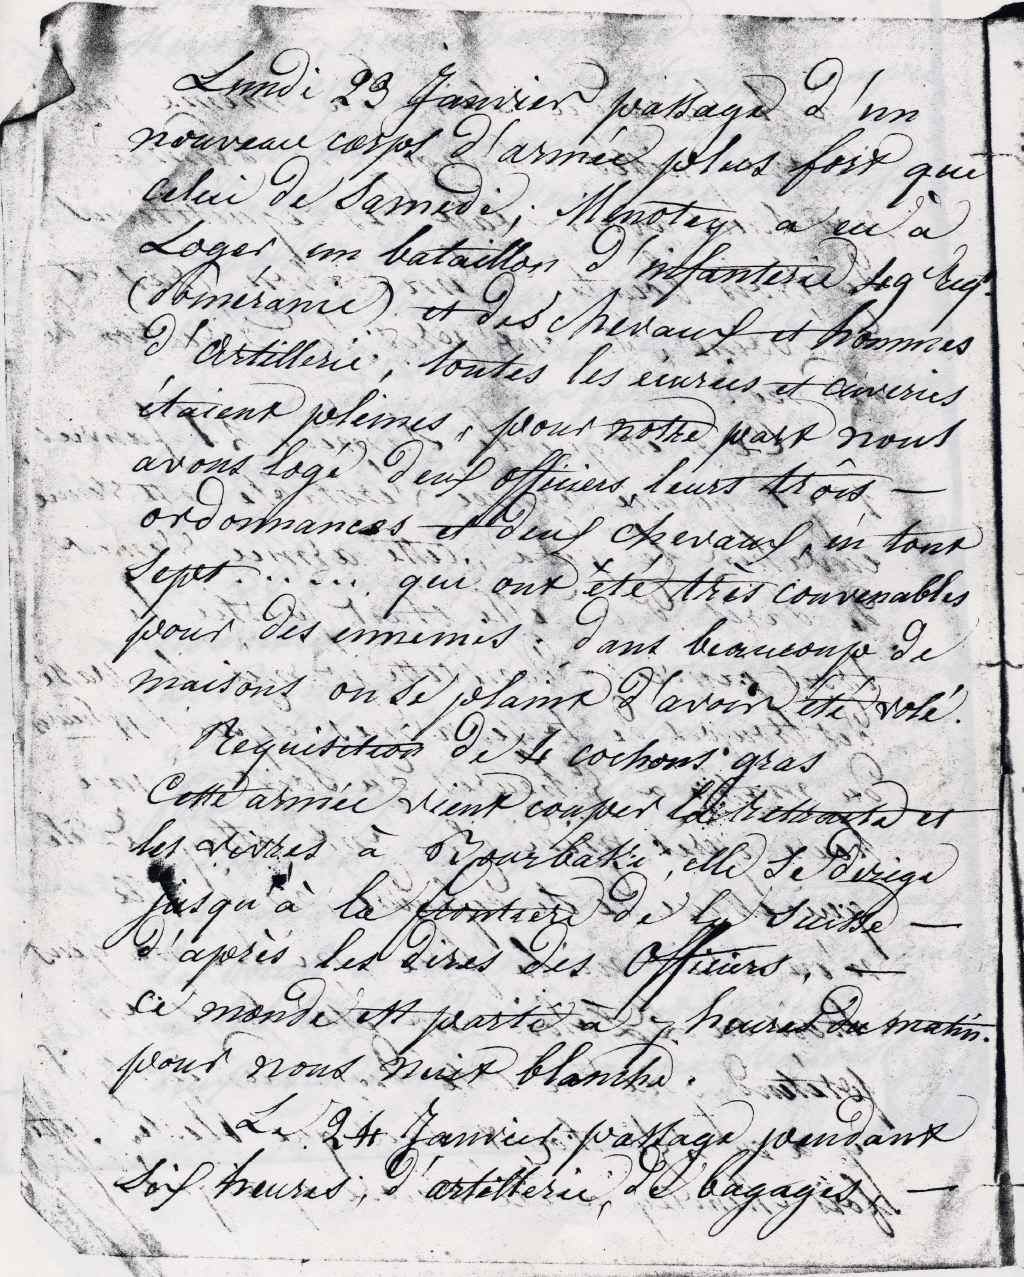 Lundi 23 Janvier passage d'un
nouveau corps d'armée plus fort que
celui de Samedi, Menotey a eu à
Loger un bataillon d'infanterie 49e Reg.
(Poméranie) et des chevaux et hommes
d'Artillerie, toutes les écuries et
étaient pleines, pour notre part nous
avons logé deux officiers, leurs trois —
ordonnances et deux chevaux, en tout
Sept...... qui ont été très convenables
pour des ennemis. dans beaucoup de
maisons on se plaint d'avoir été volé.
Requisition de 4 cochons gras
Cette armée vient couper la retraite et
les vivres à Bourbaki, elle se dirige
jusqu'à la frontière de la Suisse —
d'après les dires des Officiers. —
ce monde est parti à 7 heures du matin.
pour nous nuit blanche.
Le 24 Janvier passage pendant
Six heures, d'artillerie, de bagages —